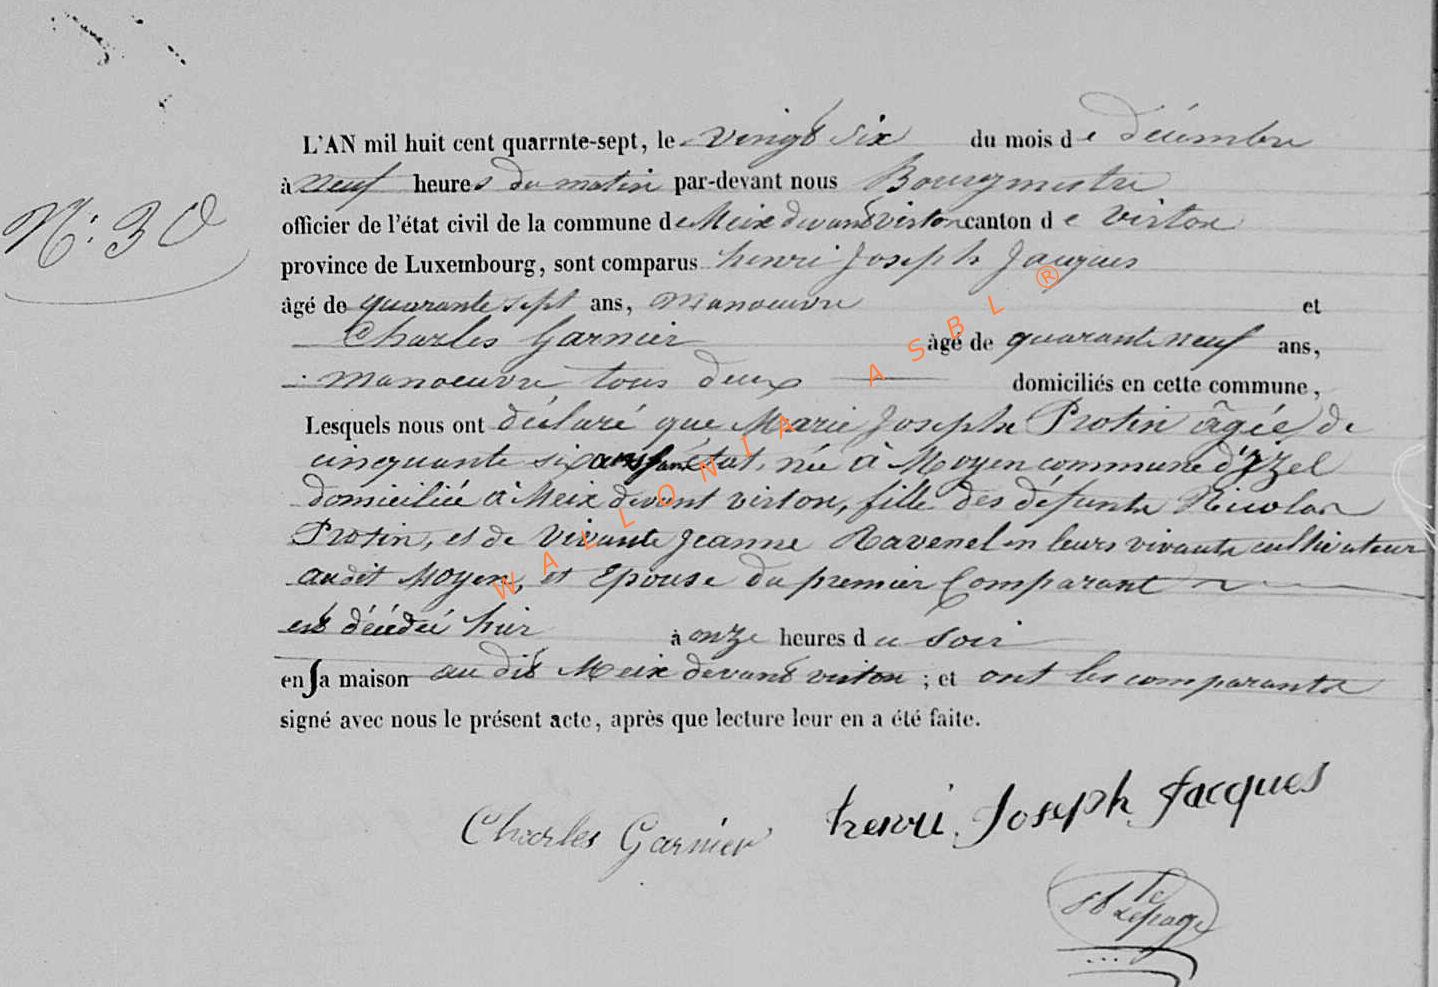 L'AN mil huit cent quarrnte-sept, le vingt six du mois de décembre
N: 30
à neuf heures du matin par-devant nous Bourgmestre
officier de l'état civil de la commune de Meix devant virton canton de virton
province de Luxembourg, sont comparus henri Joseph Jacques
âgé de quarante sept ans, manoeuvre et
Charles Garnier âgé de quarante neuf ans,
manoeuvre tous deux domiciliés en cette commune,
Lesquels nous ont déclaré que Marie Josephe Protin âgée de
cinquante six ans sans état, née à Moyen commune d'Izel
domiciliée à Meix devant virton, fille des défunts Nicolas
Protin, et de vivante Jeanne Ravenel en leurs vivants cultivateurs
audit Moyen, et Epouse du premier Comparant
est décédée hier à onze heures du soir
en sa maison au dit Meix devant virton ; et ont les comparants
signé avec nous le présent acte, après que lecture leur en a été faite.
WALLONIA ASBL ®
Charles Garnier henri Joseph Jacques
Lepage